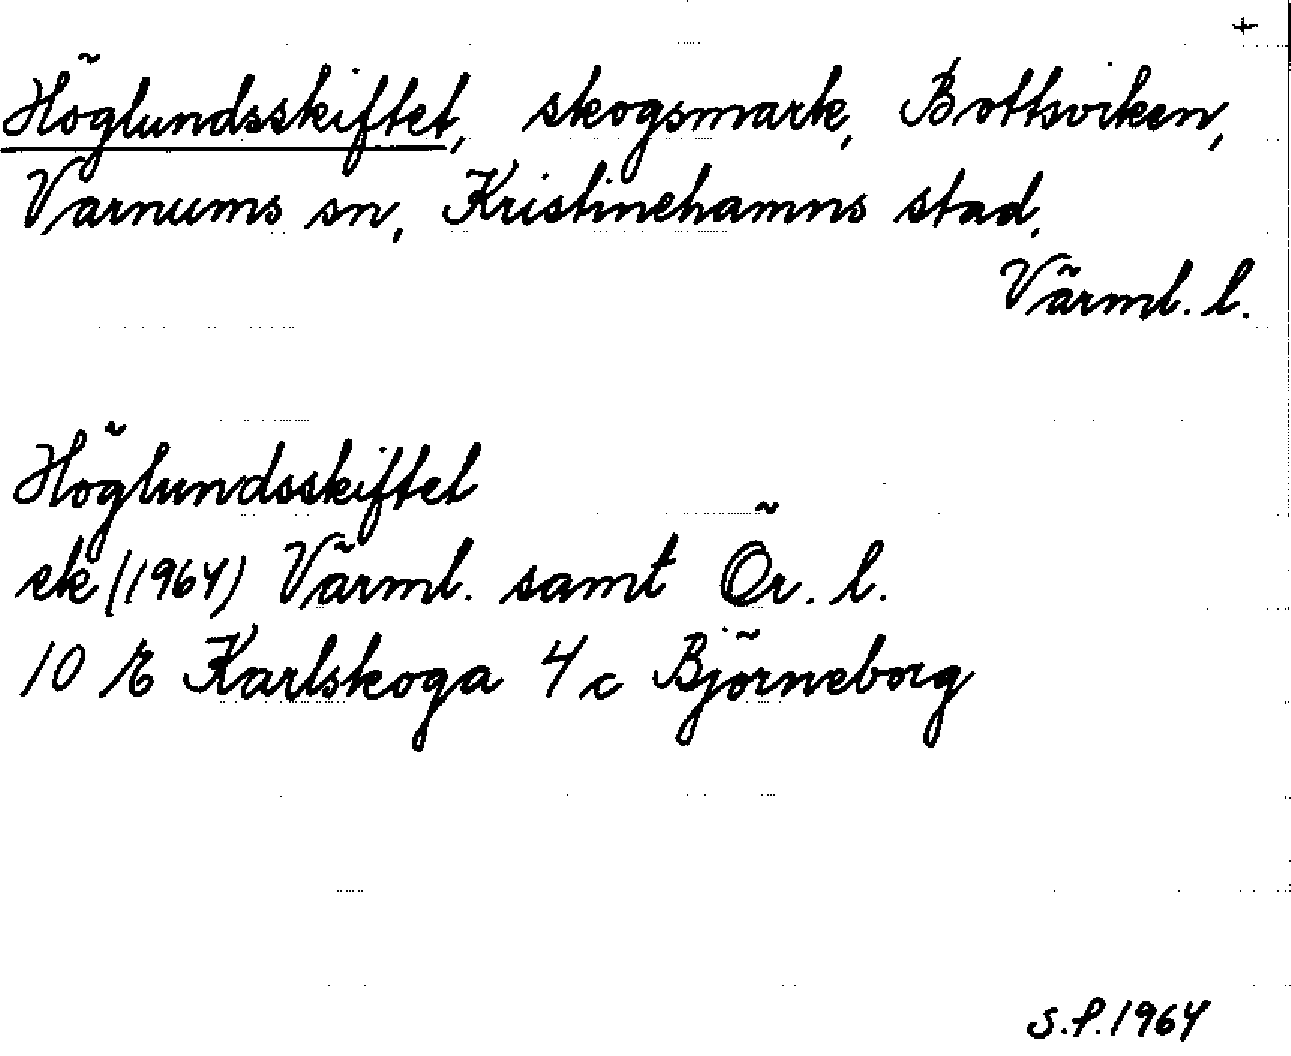 +
Höglundsskiftet, skogsmark, Bottsviken,
Varnums sn, Kristinehamns stad,
Värml. l.
Höglundsskiftet
ek (1964) Värml. samt Ör. l.
10 E Karlskoga 4 c Björneborg
S.P. 1964